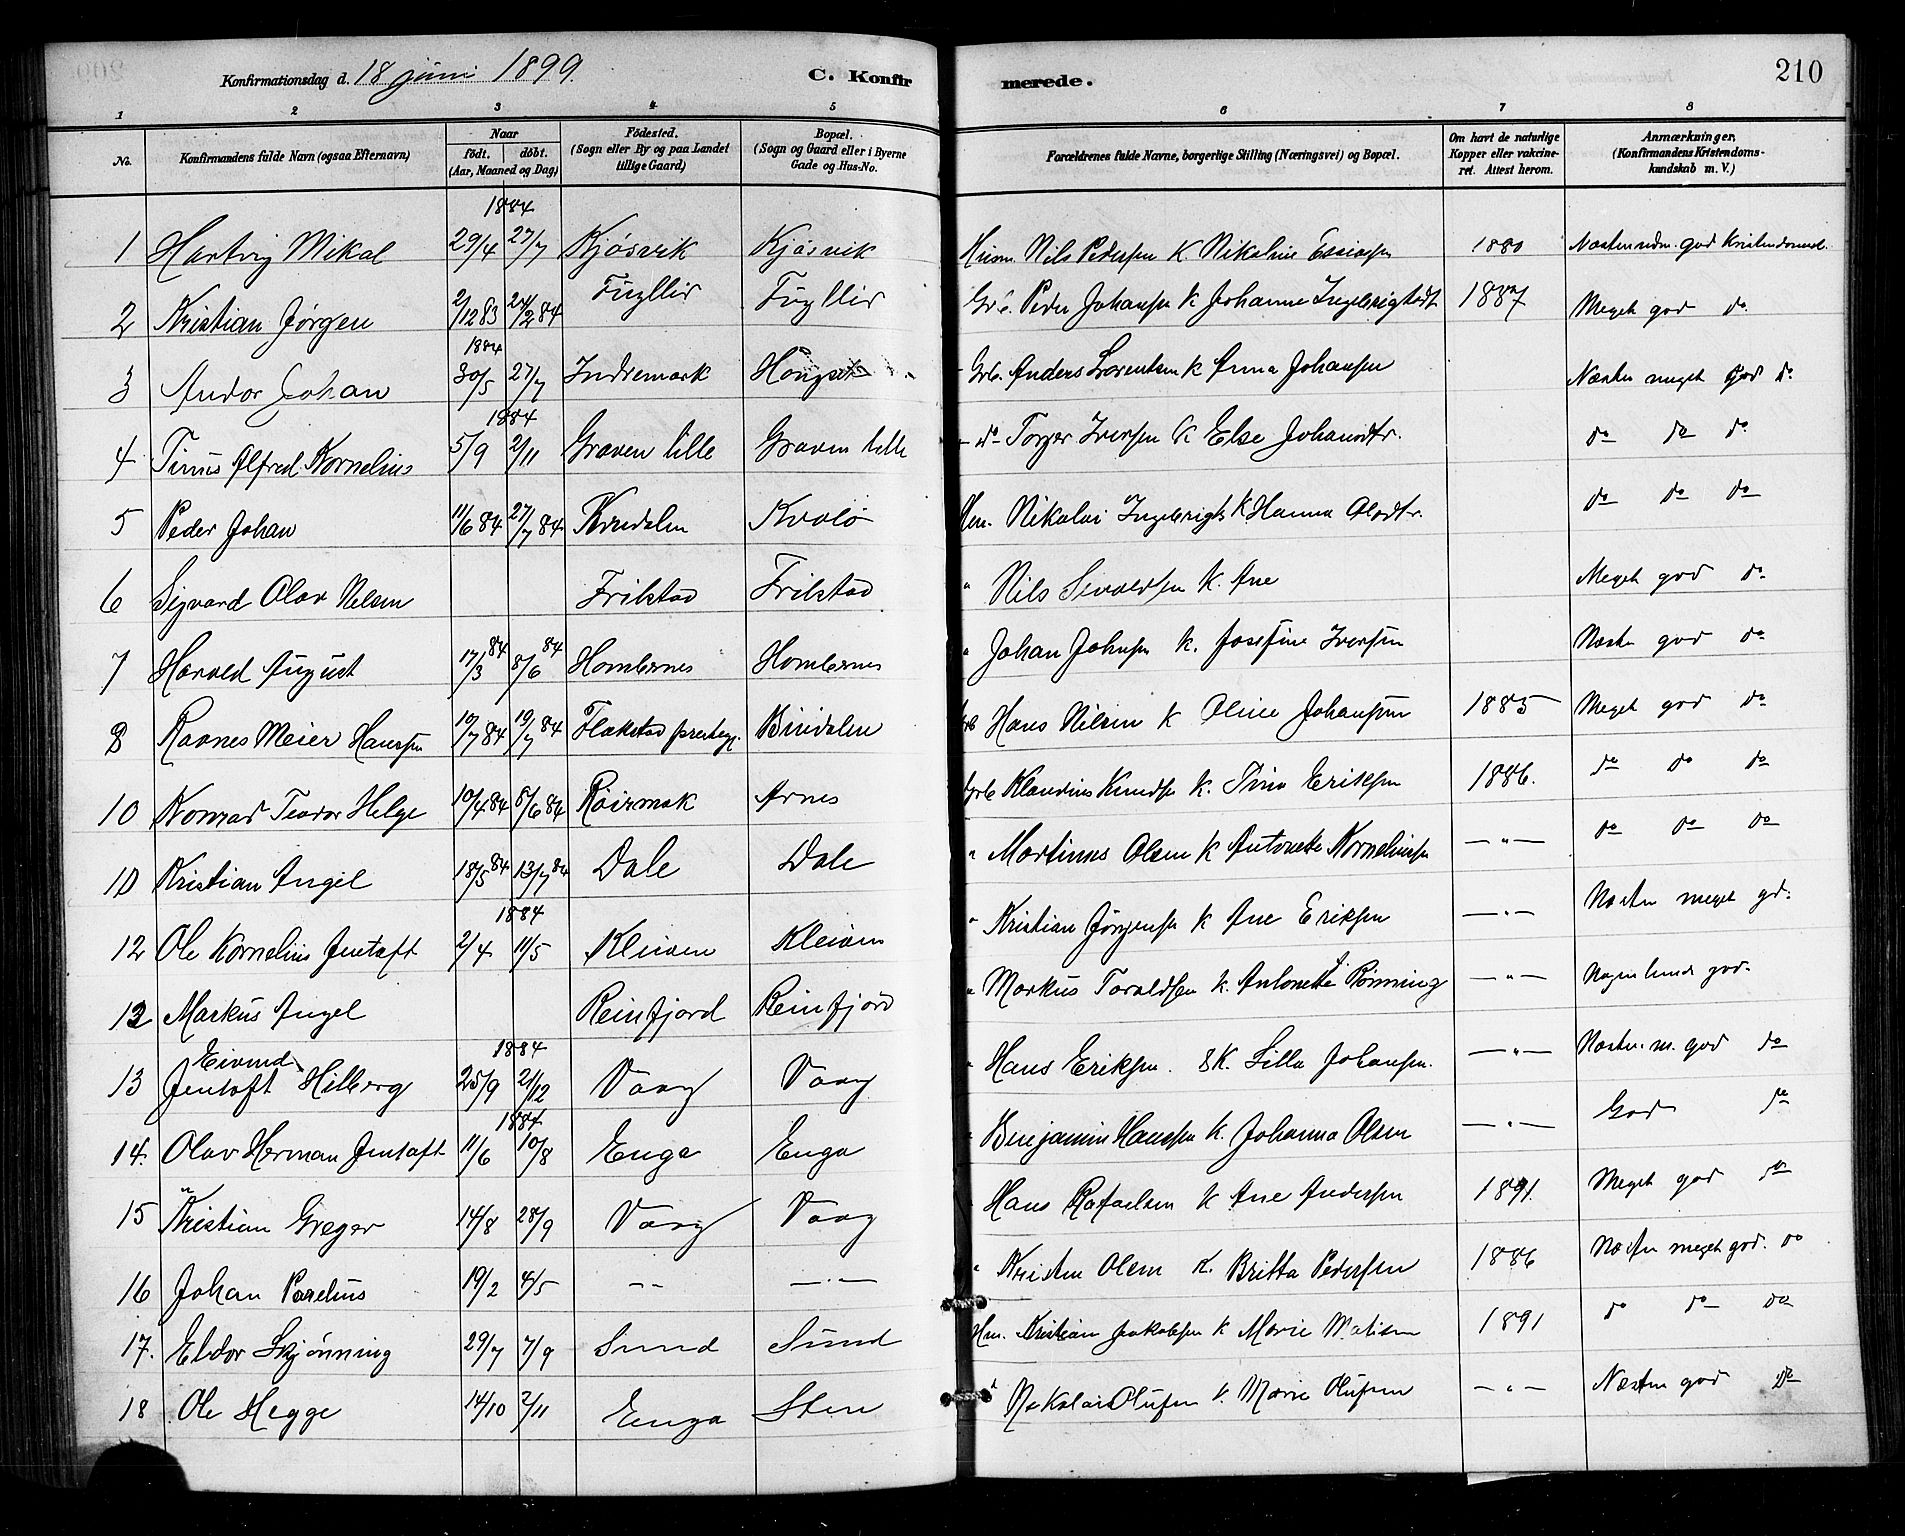 Konfirmationsdag d. 18 juni 1899.
C. Konfir
merede.
210
1 2 3 4 5 6 7 8
No.
Konfirmandens fulde Navn (ogsaa Efternavn)
Naar
födt. döbt.
(Aar, Maaned og Dag)
Födested.
(Sogn eller By og paa Landet
tillige Gaard)
Bopæl.
(Sogn og Gaard eller i Byerne
Gade og Hus-No.
Forældrenes fulde Navne, borgerlige Stilling (Næringsvei) og Bopæl.
Om havt de naturlige
Kopper eller vakcine-
ret. Attest herom.
Anmærkninger,
(Konfirmandens Kristendoms-
kundskab m. V.)
1884
1 Hartvig Mikal 29/4 27/7 Kjøsvik Kjøsvik Husm. Nils Pedersen K Nikoline 1880 Næsten udm. god
2 Kristian Jørgen 2/12 83 24/2 84 Grb. Peder Johansen K Johanne Ingebrigtsdt 1887 Meget god do
1884
3 Andor Johan 30/5 27/7 Indremark Grb. Anders Lorentsen K Anna Johansen Næsten meget god do
1884
4 Alfred Kornelius 5/9 2/11 Graven lille Graven lille do Torger Iversen K Else Johansdtr. do do do
5 Peder Johan 11/6 84 27/7 84 Kvalø Hm. Nikolai Ingebrigts K Hanna Olsdtr. do do do
6 Sigvard Olav Nilsen Frilstad Frilstad " Nils Sivaldsen K. Ane Meget god do
7 Harald August 17/3 84 8/6 84 Hombernes Hombernes " Johan Johnsen K. Josefine Iversen Næsten god do
8 Ragnes Meier Hanssen 10/7 84 19/7 84 Flakstad prestegj. Bindalen Hans Nilsen K Oline Johansen 1885 Meget god do
10 Konrad Teodor Helge 10/4 84 8/6 84 Røirmark Arnes Grb Klaudius Knudsen K. Trina Eriksen 1886. do do do
11 Kristian Angel 18/5 84 13/7 84 Dale Dale " Martinus Olsen K Antonette Korneliussen — " — do do do
1884
12 Ole Kornelius Jentoft 2/4 11/5 Kleiven Kleiven " Kristian Jørgensen K Ane Eriksen — " — Næsten meget gd.
12 Markus Angel Reinfjord Reinfjord " Markus Toraldsen K. Antonette Rønning — " — Nogenlunde god.
Eivind 1884
13 Jentoft Hilberg 25/9 21/12 Vaag Vaag " Hans Eriksen. K. Silla Johansen. — " — Næsten m. god do
1884
14. Olav Herman Jentoft 11/6 10/8 Enga Enga " Benjamin Hanssen K. Johanna Olsen — " — God do
15 Kristian Greger 14/8 28/9 Vaag Vaag Hans Rafaelsen K Ane Andersen 1891. Meget god do
16 Johan Parelius 19/2 4/5 — — — " — " Kristen Olsen K. Britta Pedersen 1886 Næsten meget god. do
17. Eldor Skjønning 29/7 7/9 Sund Sund Hm. Kristian Jakobsen K Marie Matisen 1891 do do do
18 Ole Hegge 14/10 2/11 Enga Sten Nikolai Olufsen K. Marie Olufsen — " — Næsten god do